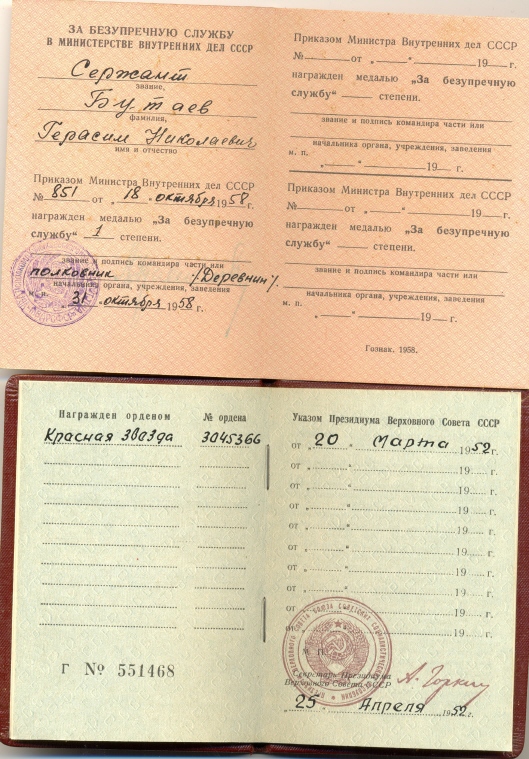 ЗА БЕЗУПРЕЧНУЮ СЛУЖБУ
В МИНИСТЕРСТВЕ ВНУТРЕННИХ ДЕЛ СССР
Сержант
звание,
Бутаев
фамилия,
Герасим Николаевич
имя и отчество
Приказом Министра Внутренних дел СССР
№ 851 от „ 18 “ октября 1958 г.
награжден медалью „За безупречную
службу“ 1 степени.
звание и подпись командира части или
полковник /Деревнин/.
начальника органа, учреждения, заведения
м. п. „ 31 “ октября 1958 г.
Приказом Министра Внутренних дел СССР
№ от „ “ 19 г.
награжден медалью „За безупречную
службу“ степени.
звание и подпись командира части или
начальника органа, учреждения, заведения
м. п. „ “ 19 г.
Приказом Министра Внутренних дел СССР
№ от „ “ 19 г.
награжден медалью „За безупречную
службу“ степени.
звание и подпись командира части или
начальника органа, учреждения, заведения
м. п. „ “ 19 г.
Гознак. 1958.
Награжден орденом № ордена
Красная Звезда 3045366
Г № 551468
Указом Президиума Верховного Совета СССР
от „ 20 “ Марта 1952 г.
от „ “ 19 г.
от „ “ 19 г.
от „ “ 19 г.
от „ “ 19 г.
от „ “ 19 г.
от „ “ 19 г.
от „ “ 19 г.
от „ “ 19 г.
от „ “ 19 г.
М. П.
Секретарь Президиума
Верховного Совета СССР
А. Горкин
„ 25 “ Апреля 1952 г.